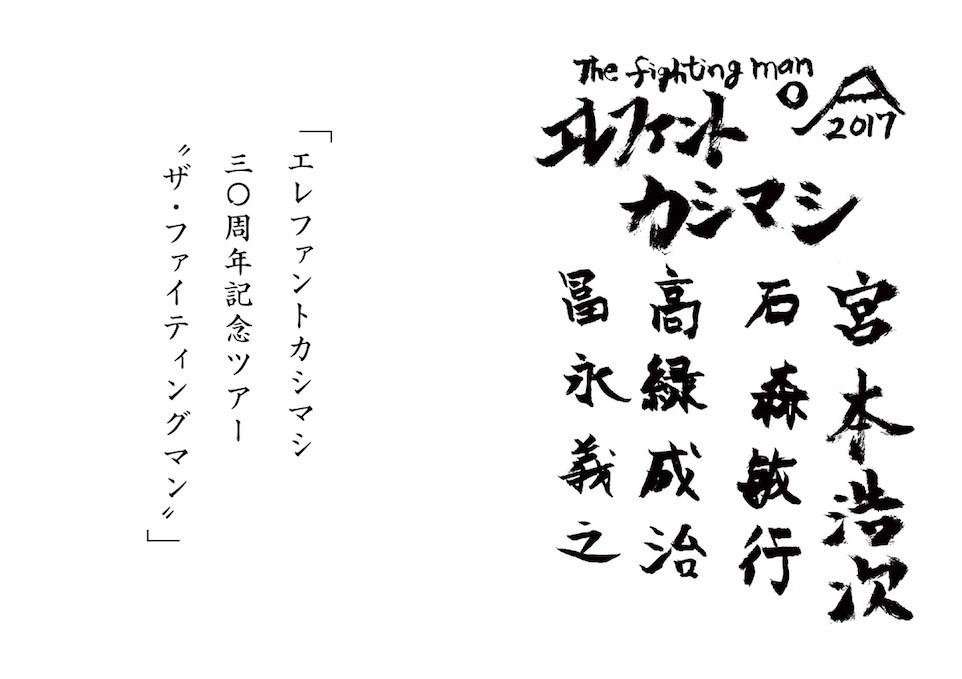 The fighting man
2017
エレファント
カシマシ
宮本浩次
石森敏行
高緑成治
冨永義之
「エレファントカシマシ
三〇周年記念ツアー
〝ザ・ファイティングマン〟」